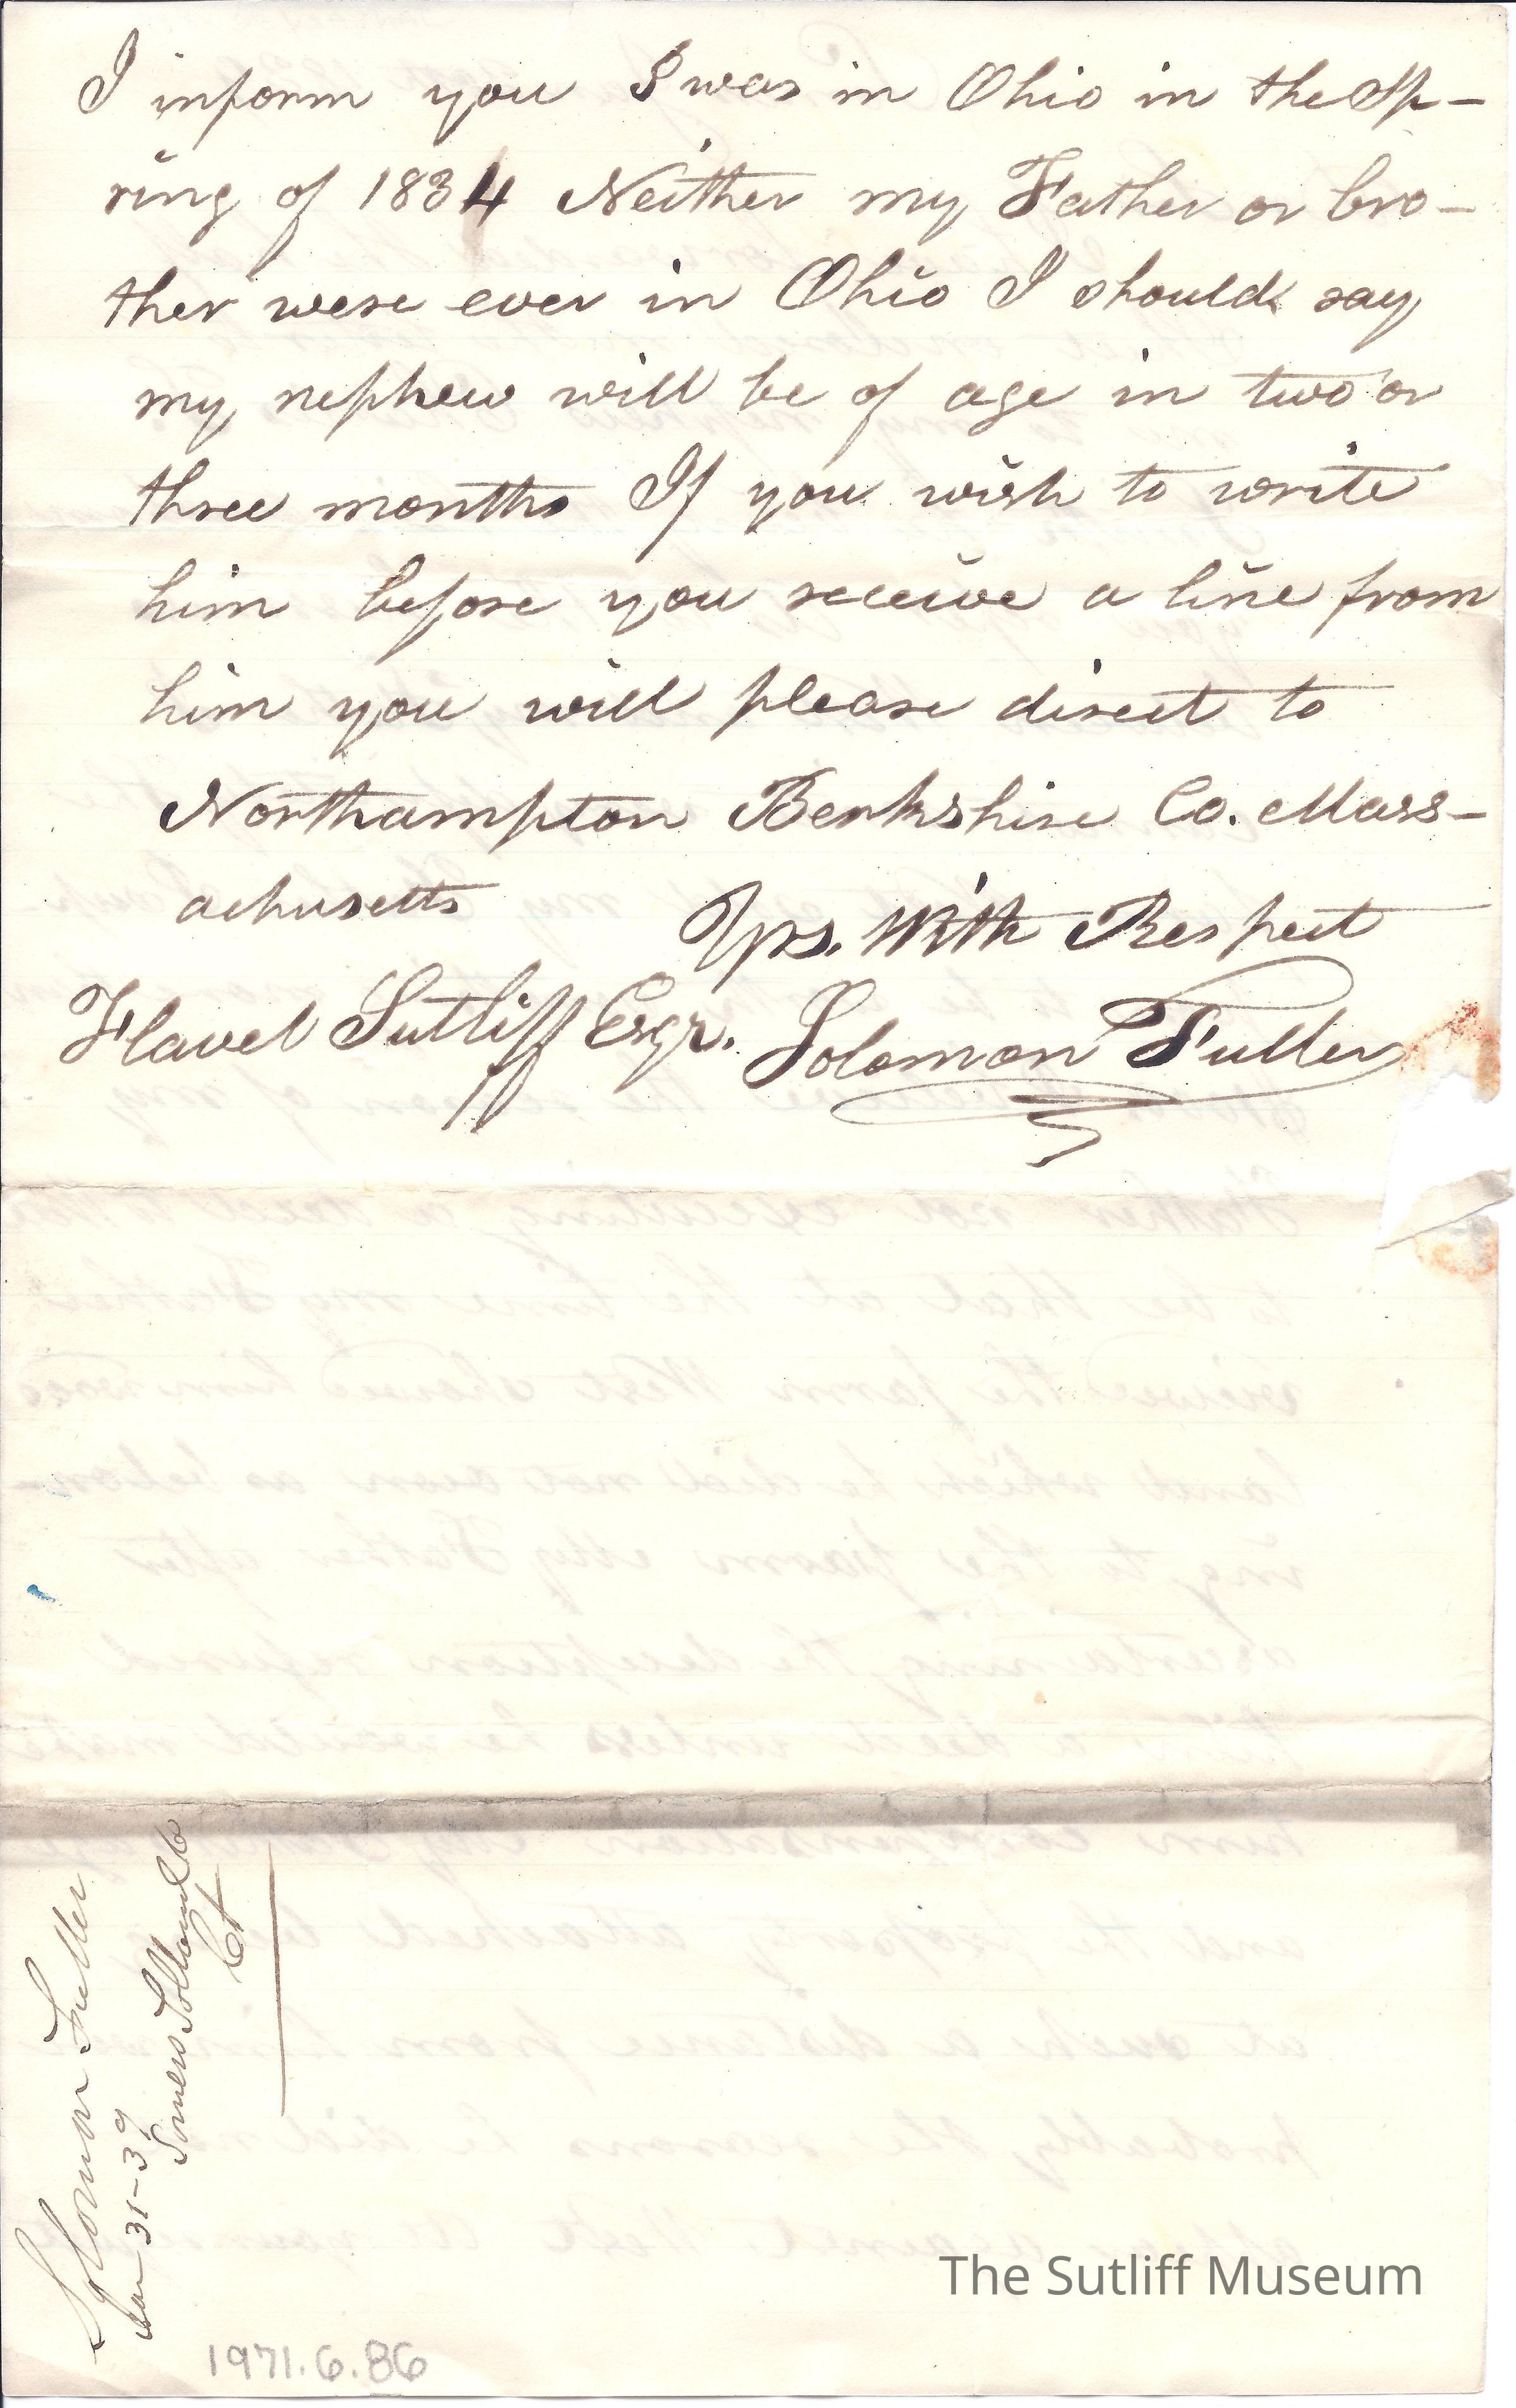 I inform you I was in Ohio in the Sp-
ring of 1834 Neither my Father or bro-
ther were ever in Ohio I should say
my nephew will be of age in two or
three months If you wish to write
him before you receive a line from
him you will please direct to
Northampton Berkshire Co. Mass-
achusetts
Yrs. With Respect
Flavel Sutliff Esqr. Solomon Fuller
Solomon Fuller
31-39
Somers Tolland Co
Ct
The Sutliff Museum
1971.6.86